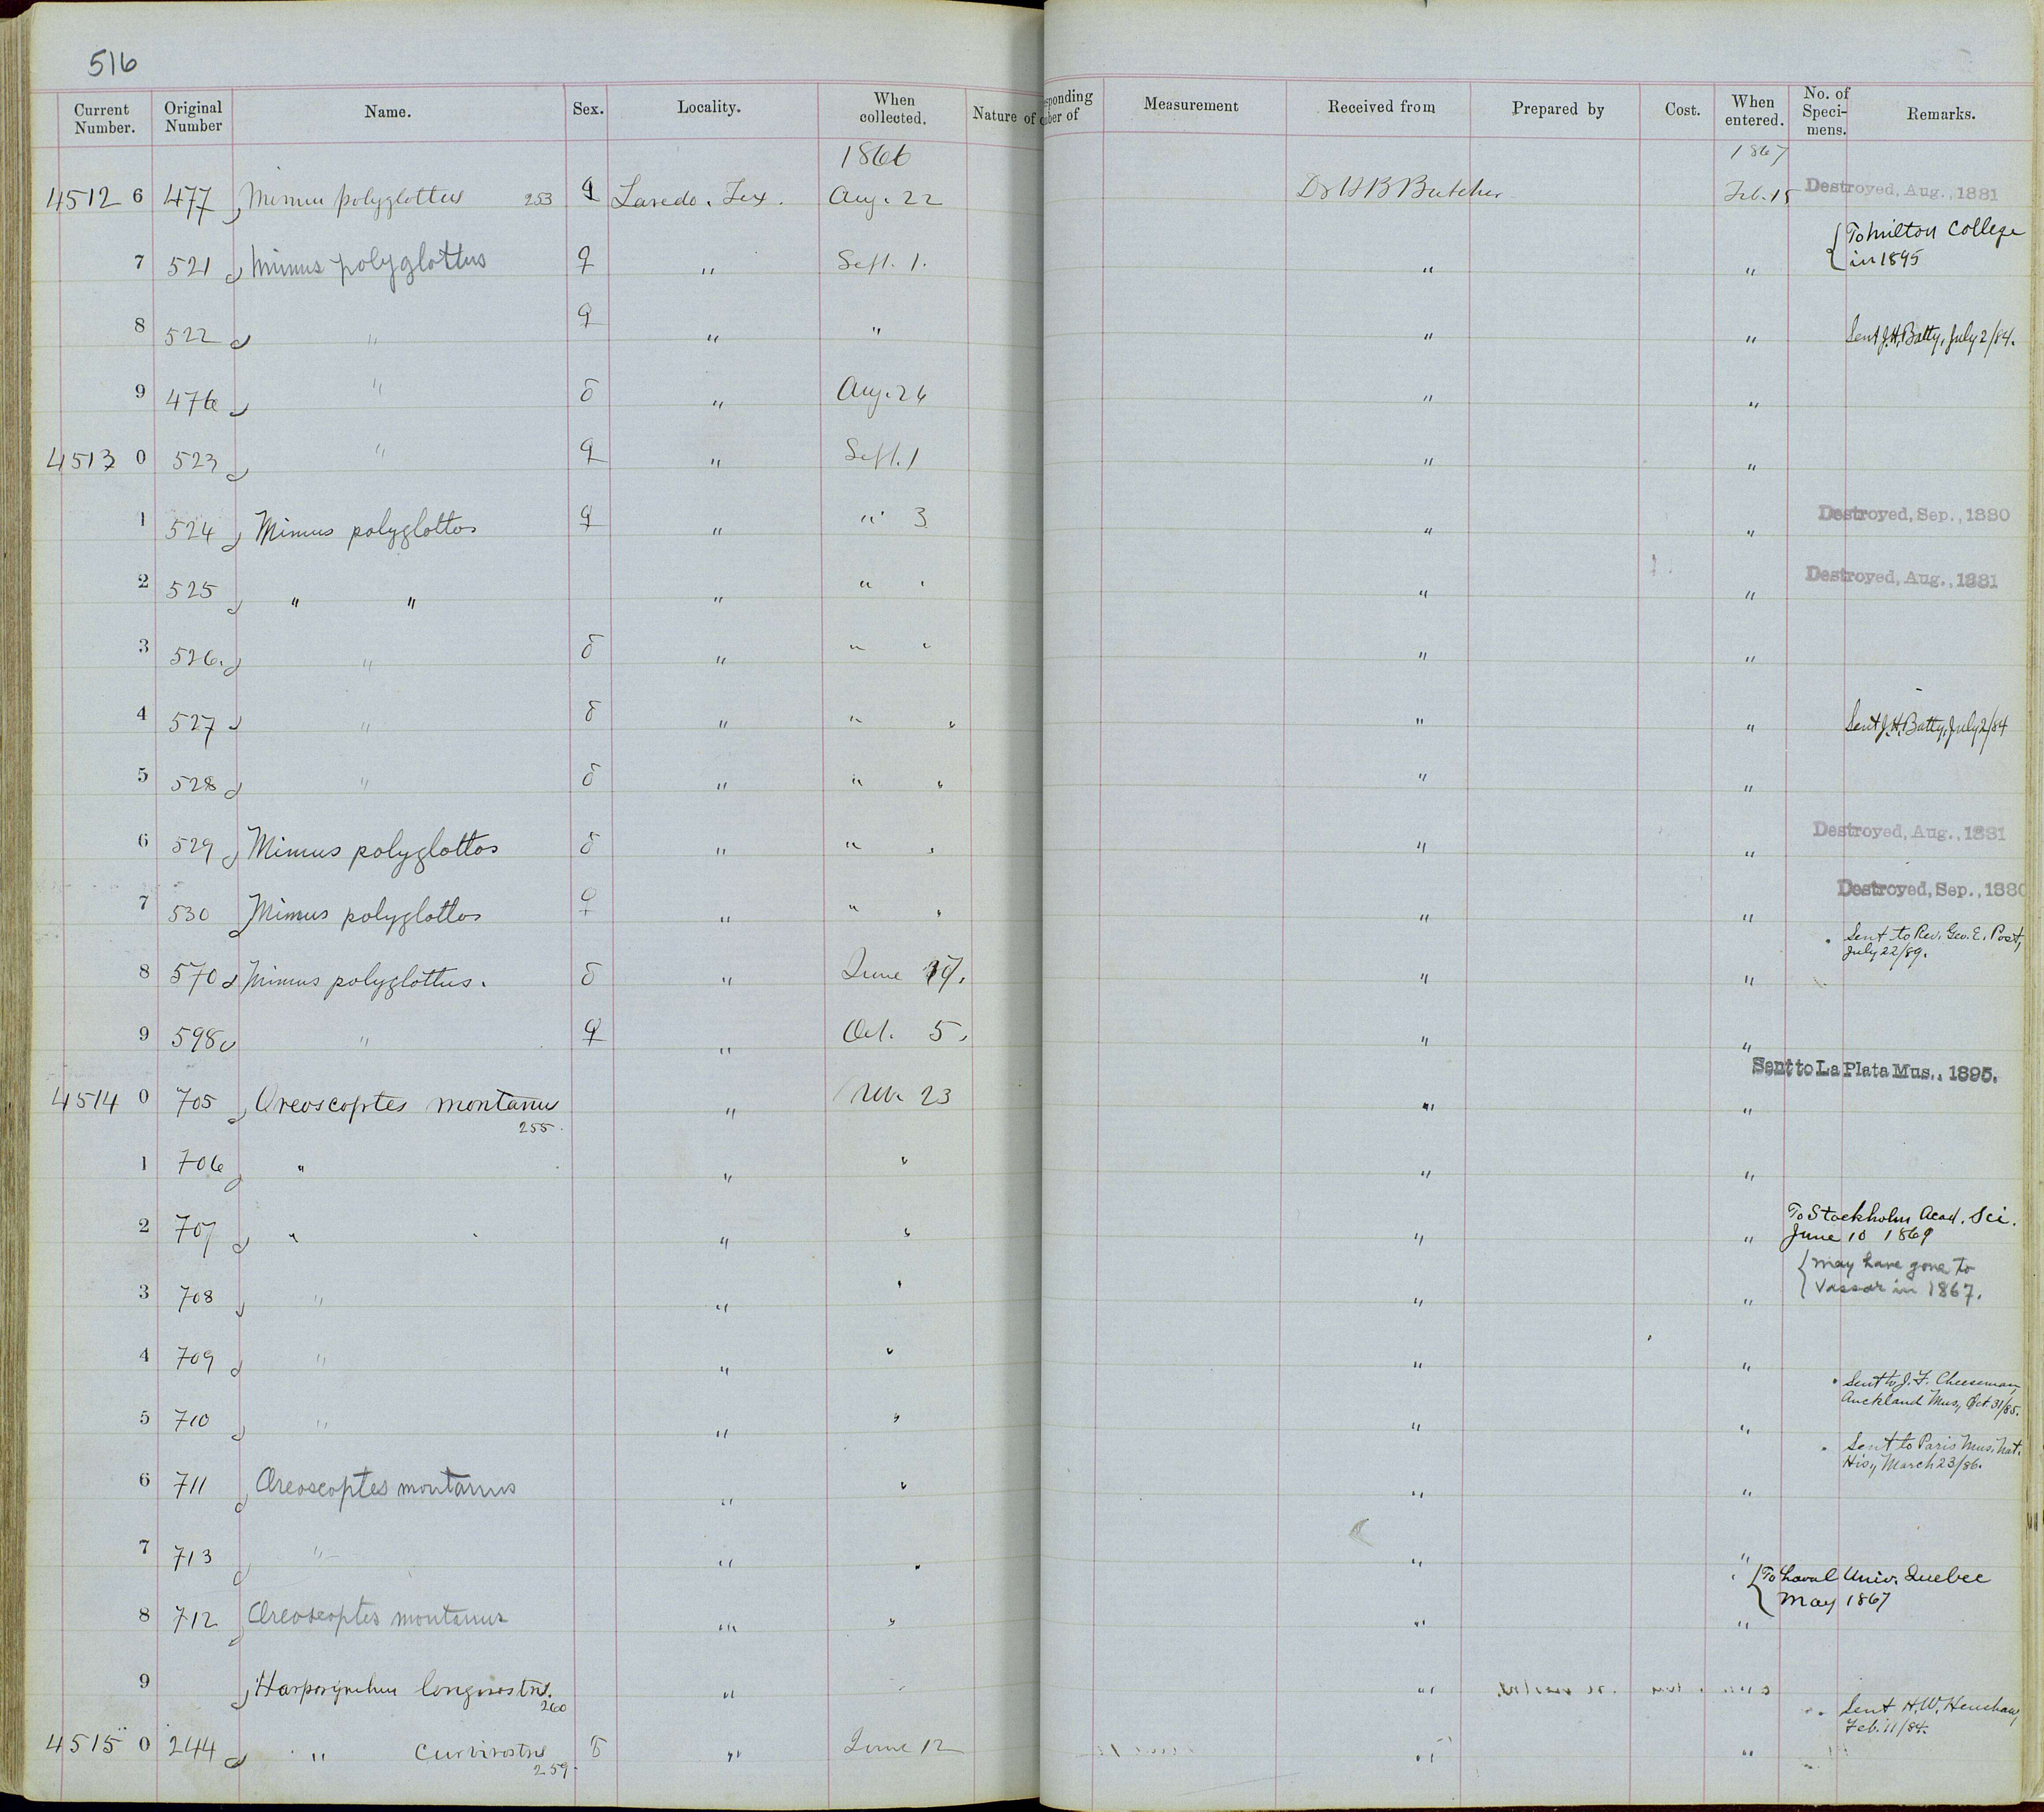 516
Current Number. Original Number Name. Sex. Locality. When collected. Nature of sponding ber of Measurement Received from Prepared by Cost. When entered. No. of Speci-mens. Remarks.
1866 1867
4512 6 477 Mimus polyglottus 253 ♀ Laredo. Tex. Aug. 22 Dr H B Butcher Feb. 15 Destroyed, Aug., 1881
7 521 Mimus polyglottus ♀ " Sept. 1. " " { To Milton College
in 1895
8 522 " ♀ " " " " Sent J.H. Batty, July 2/84.
9 476 " ♂ " Aug. 26 " "
4513 0 523 " ♀ " Sept. 1 " "
1 524 Mimus polyglottos ♀ " " 3 " " Destroyed, Sep., 1880
2 525 " " " " " " " Destroyed, Aug., 1881
3 526. " ♂ " " " " "
4 527 " ♂ " " " " " Sent J.H. Batty, July 2/84
5 528 " ♂ " " " " "
6 529 Mimus polyglottos ♂ " " " " " Destroyed, Aug., 1881
7 530 Mimus polyglottos ♀ " " " " " Destroyed, Sep., 1880
8 570 Mimus polyglottus. ♂ " June " " Sent to Rev. Geo. E. Post,
July 22/89.
9 598 " ♀ " Oct. 5, " "
4514 0 705 Oreoscoptes montanus 255. " 23 " " Sent to La Plata Mus., 1895.
1 706 " " " " "
2 707 " " " " " To Stockholm Acad. Sci.
June 10 1869
3 708 " " " " " { may have gone to
Vassar in 1867.
4 709 " " " " "
5 710 " " " " " Sent to J. F. Cheeseman,
Auckland Mus, Oct 31/85.
6 711 Oreoscoptes montanus " " " " Sent to Paris Mus. Nat.
His., March 23/86.
7 713 " " " " "
8 712 Oreoscoptes montanus " " " " { To Laval Univ. Quebec
May 1867
9 Harporynchus longirostris. 260 " " "
4515 0 244 " curvirostris 259. ♂ " June 12 " " Sent H.W. Henshaw,
Feb. 11/84.